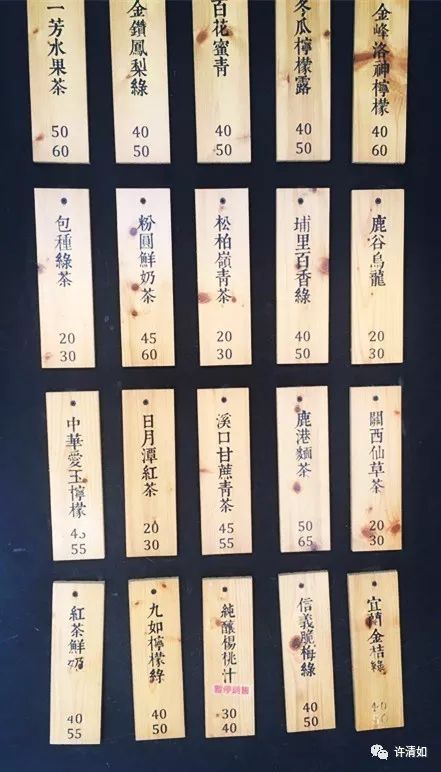 一芳水果茶
50
60
金鑽鳳梨綠
40
50
百花蜜青
40
50
冬瓜檸檬露
40
50
金峰洛神檸檬
40
60
包種綠茶
20
30
粉圓鮮奶茶
45
60
松柏嶺青茶
20
30
埔里百香綠
40
50
鹿谷烏龍
20
30
中華愛玉檸檬
45
55
日月潭紅茶
20
30
溪口甘蔗青茶
45
55
鹿港麵茶
50
65
關西仙草茶
20
30
紅茶鮮奶
40
55
九如檸檬綠
40
50
純釀楊桃汁
暫停銷售
30
40
信義脆梅綠
40
50
宜蘭金桔綠
40
许清如